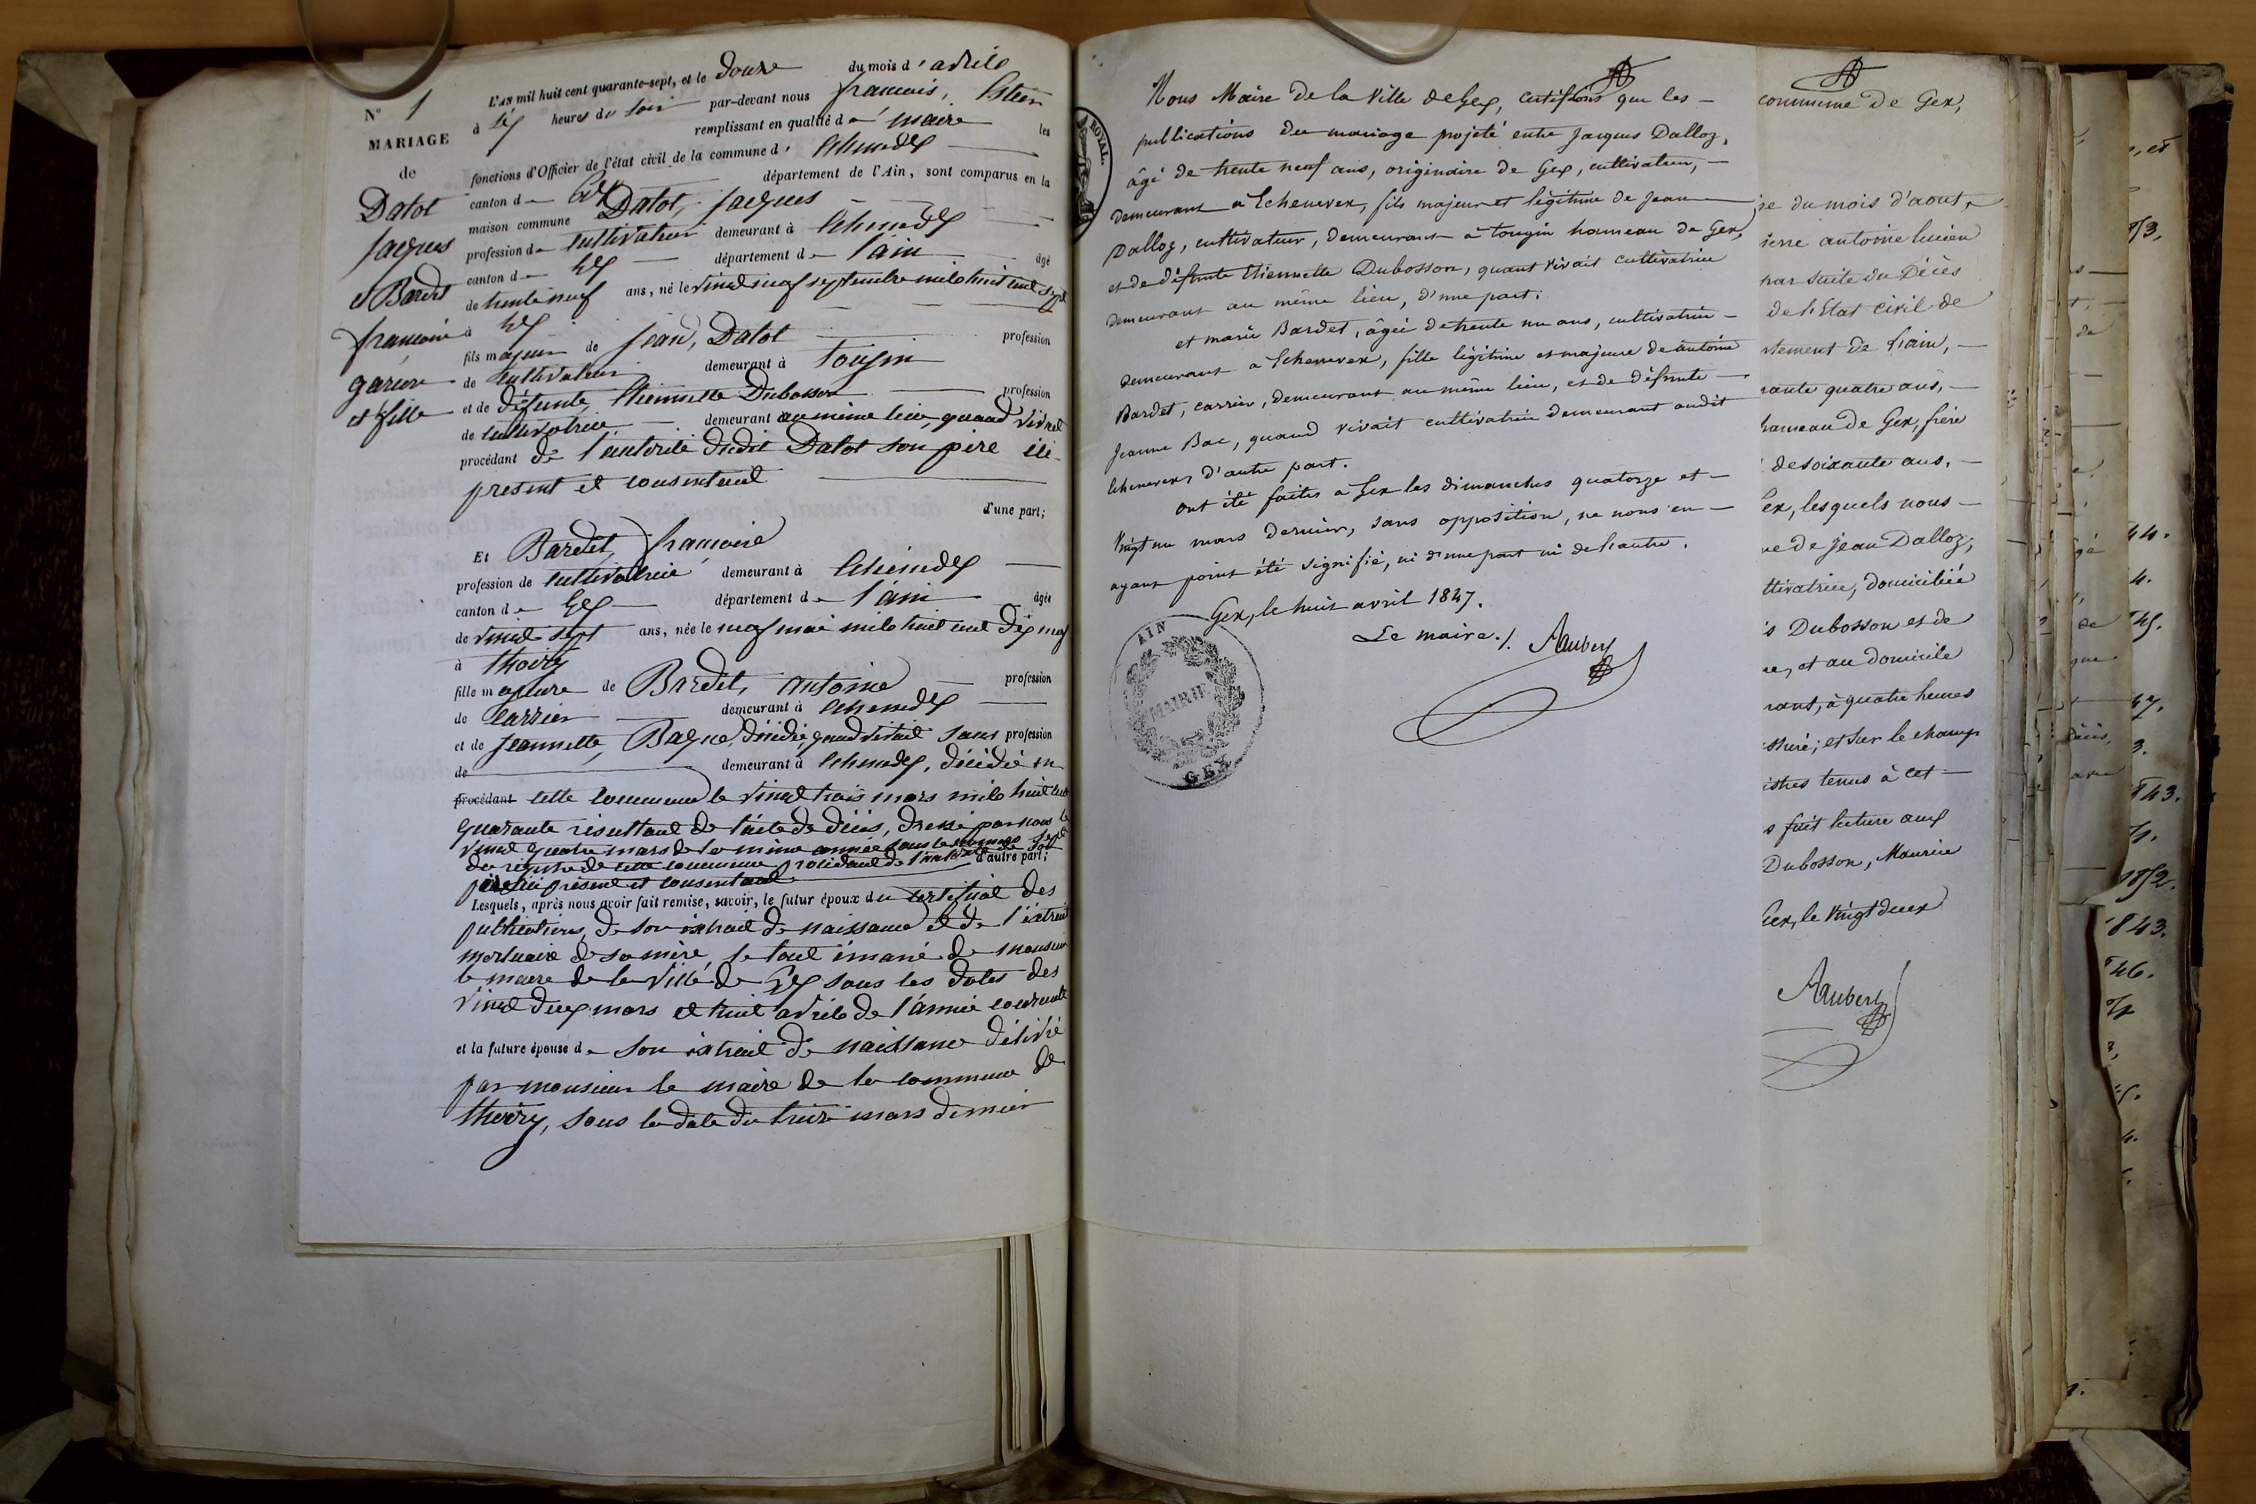 N° 1
MARIAGE
de
Dalot
Jacques
et Bardet
françoise
garçon
et fille
L'AN mil huit cent quarante-sept, et le douze du mois d'avril
à six heures du soir par-devant nous françois,
remplissant en qualité de maire les
fonctions d'Officier de l'état civil de la commune d'Echenevex
canton de Gex département de l'Ain, sont comparus en la
maison commune Dalot, Jacques
profession de cultivateur demeurant à Echenevex
canton de Gex département de l'ain âgé
de trente neuf ans, né le vingt neuf septembre mil huit cent sept
à Gex
fils majeur de Jean, Dalot profession
de cultivateur demeurant à Tougin
et de défunte Etiennette Dubosson profession
de cultivatrice demeurant au même lieu, quand vivait
procédant de l'autorité dudit Dalot son père ici
présent et consentant
d'une part;
Et Bardet, françoise
profession de cultivatrice demeurant à Echenevex
canton de Gex département de l'ain âgée
de vingt sept ans, née le neuf mai mil huit cent dix neuf
à Thoiry
fille majeure de Bardet, antoine profession
de carrier demeurant à Echenevex
et de Jeannette, Bague, décédée, quand vivait sans profession
de demeurant à Echenevex, décédée en
procédant cette commune le vingt trois mars mil huit cent
quarante résultant de l'acte de décès, dressé par nous le
vingt quatre mars de la même année sous le numéro sept
du registre de cette commune procédant de l'autorité de son d'autre part;
père ici présent et consentant
Lesquels, après nous avoir fait remise, savoir, le futur époux du certificat des
publications, de son extrait de naissance et de l'extrait
mortuaire de sa mère, le tout émané de monsieur
le maire de la Ville de Gex sous les dates des
vingt deux mars et huit avril de l'année courante
et la future épouse de son extrait de naissance délivré
par monsieur le maire de la commune de
thoiry, sous la date du treize mars dernier
ROYAL.
Nous Maire de la Ville de Gex, certifions que les
publications du mariage projeté entre Jacques Dalloz,
âgé de trente neuf ans, originaire de Gex, cultivateur,
demeurant à Echenevex, fils majeur et légitime de Jean
Dalloz, cultivateur, demeurant à tougin hameau de Gex,
et de défunte Etiennette Dubosson, quant vivait cultivatrice
demeurant au même lieu, d'une part;
et marie Bardet, âgée de trente un ans, cultivatrice
demeurant à Echenevex, fille légitime et majeure de antoine
Bardet, carrier, demeurant au même lieu, et de défunte
Jeanne Bac, quand vivait cultivatrice demeurant audit
Echenevex, d'autre part.
ont été faites à Gex les dimanches quatorze et
vingt un mars dernier, sans opposition, ne nous en
ayant point été signifié, ni d'une part ni de l'autre.
Gex, le huit avril 1847.
Le maire./. Aaubert
AIN
MAIRIE
GEX
commune de Gex,
du mois d'aout,
ierre antoine lucien
par suite du Décès
de l'Etat civil de
rtement de l'ain,
rante quatre ans,
hameau de Gex, frère
de soixante ans,
Gex, lesquels nous
ve de jean Dalloz,
ltivatrice, domiciliée
s Dubosson et de
et au domicile
rant, à quatre heures
assuré; et sur le champ
istres tenus à cet
s fait lecture aux
Dubosson, Maurice
Gex, le vingt deux
Aaubert